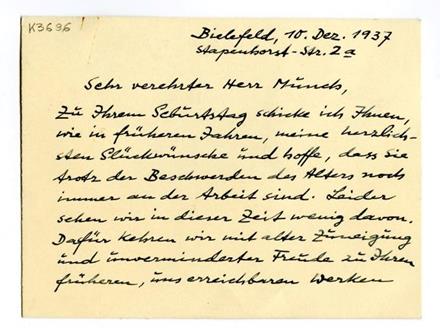 K3696
Bielefeld, 10. Dez. 1937
Stapenhorst-Str. 2a
Sehr verehrter Herr Munch,
Zu Ihrem Geburtstag schicke ich Ihnen,
wie in früheren Jahren, meine herzlich-
sten Glückwünsche und hoffe, dass Sie
trotz der Beschwerden des Alters noch
immer an der Arbeit sind. Leider
sehen wir in dieser Zeit wenig davon.
Dafür kehren wir mit alter Zuneigung
und unverminderter Freude zu Ihren
früheren, uns erreichbaren Werken